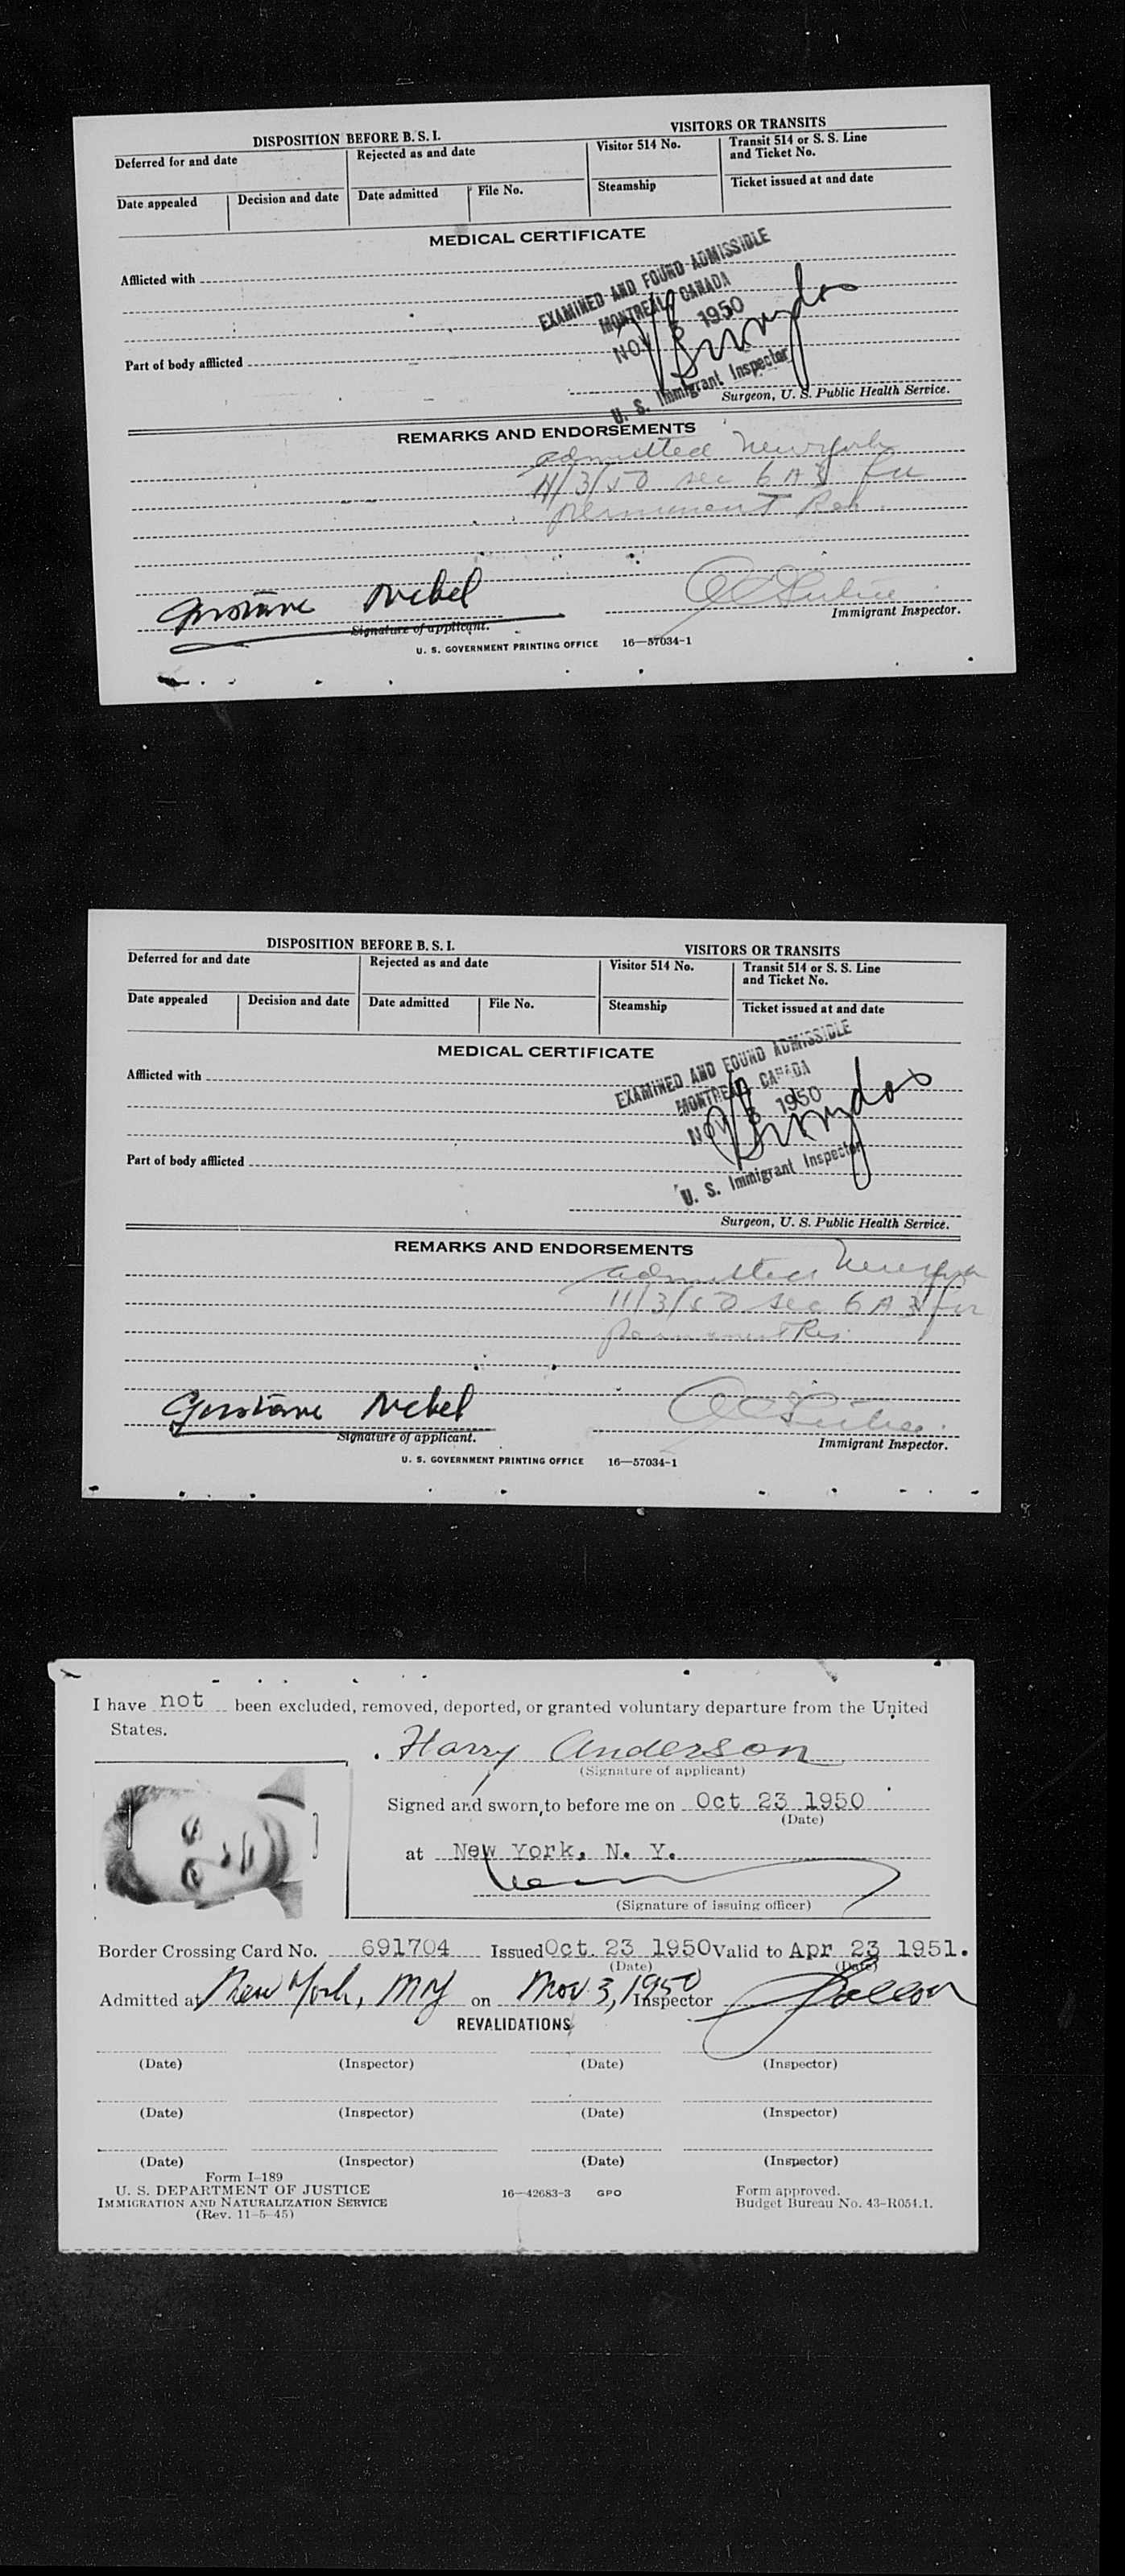 DISPOSITION BEFORE B. S. I.
VISITORS OR TRANSITS
Deferred for and date
Rejected as and date
Visitor 514 No.
Transit 514 or S. S. Line
and Ticket No.
Date appealed
Decision and date
Date admitted
File No.
Steamship
Ticket issued at and date
MEDICAL CERTIFICATE
Afflicted with
EXAMINED AND FOUND ADMISSIBLE
MONTREAL, CANADA
NOV 3 1950
Part of body afflicted
U. S. Immigrant Inspector
Surgeon, U. S. Public Health Service.
REMARKS AND ENDORSEMENTS
admitted New York
11/3/50 sec 6 A 3 for
permanent Res.
Gustave Nebel
Signature of applicant.
Immigrant Inspector.
U. S. GOVERNMENT PRINTING OFFICE 16—57034-1
DISPOSITION BEFORE B. S. I.
VISITORS OR TRANSITS
Deferred for and date
Rejected as and date
Visitor 514 No.
Transit 514 or S. S. Line
and Ticket No.
Date appealed
Decision and date
Date admitted
File No.
Steamship
Ticket issued at and date
MEDICAL CERTIFICATE
Afflicted with
EXAMINED AND FOUND ADMISSIBLE
MONTREAL, CANADA
NOV 3 1950
Part of body afflicted
U. S. Immigrant Inspector
Surgeon, U. S. Public Health Service.
REMARKS AND ENDORSEMENTS
admitted New York
11/3/50 sec 6 A 3 for
permanent Res.
Gustave Nebel
Signature of applicant.
Immigrant Inspector.
U. S. GOVERNMENT PRINTING OFFICE 16—57034-1
I have not been excluded, removed, deported, or granted voluntary departure from the United
States.
Harry Anderson
(Signature of applicant)
Signed and sworn to before me on Oct 23 1950
(Date)
at New York, N. Y.
(Signature of issuing officer)
Border Crossing Card No. 691704 Issued Oct. 23 1950 Valid to Apr 23 1951.
(Date) (Date)
Admitted at New York, NY on Nov 3, 1950 Inspector
REVALIDATIONS
(Date) (Inspector) (Date) (Inspector)
(Date) (Inspector) (Date) (Inspector)
(Date) (Inspector) (Date) (Inspector)
Form I-189
U. S. DEPARTMENT OF JUSTICE
IMMIGRATION AND NATURALIZATION SERVICE
(Rev. 11-5-45)
16—42683-3 GPO
Form approved.
Budget Bureau No. 43-R054.1.